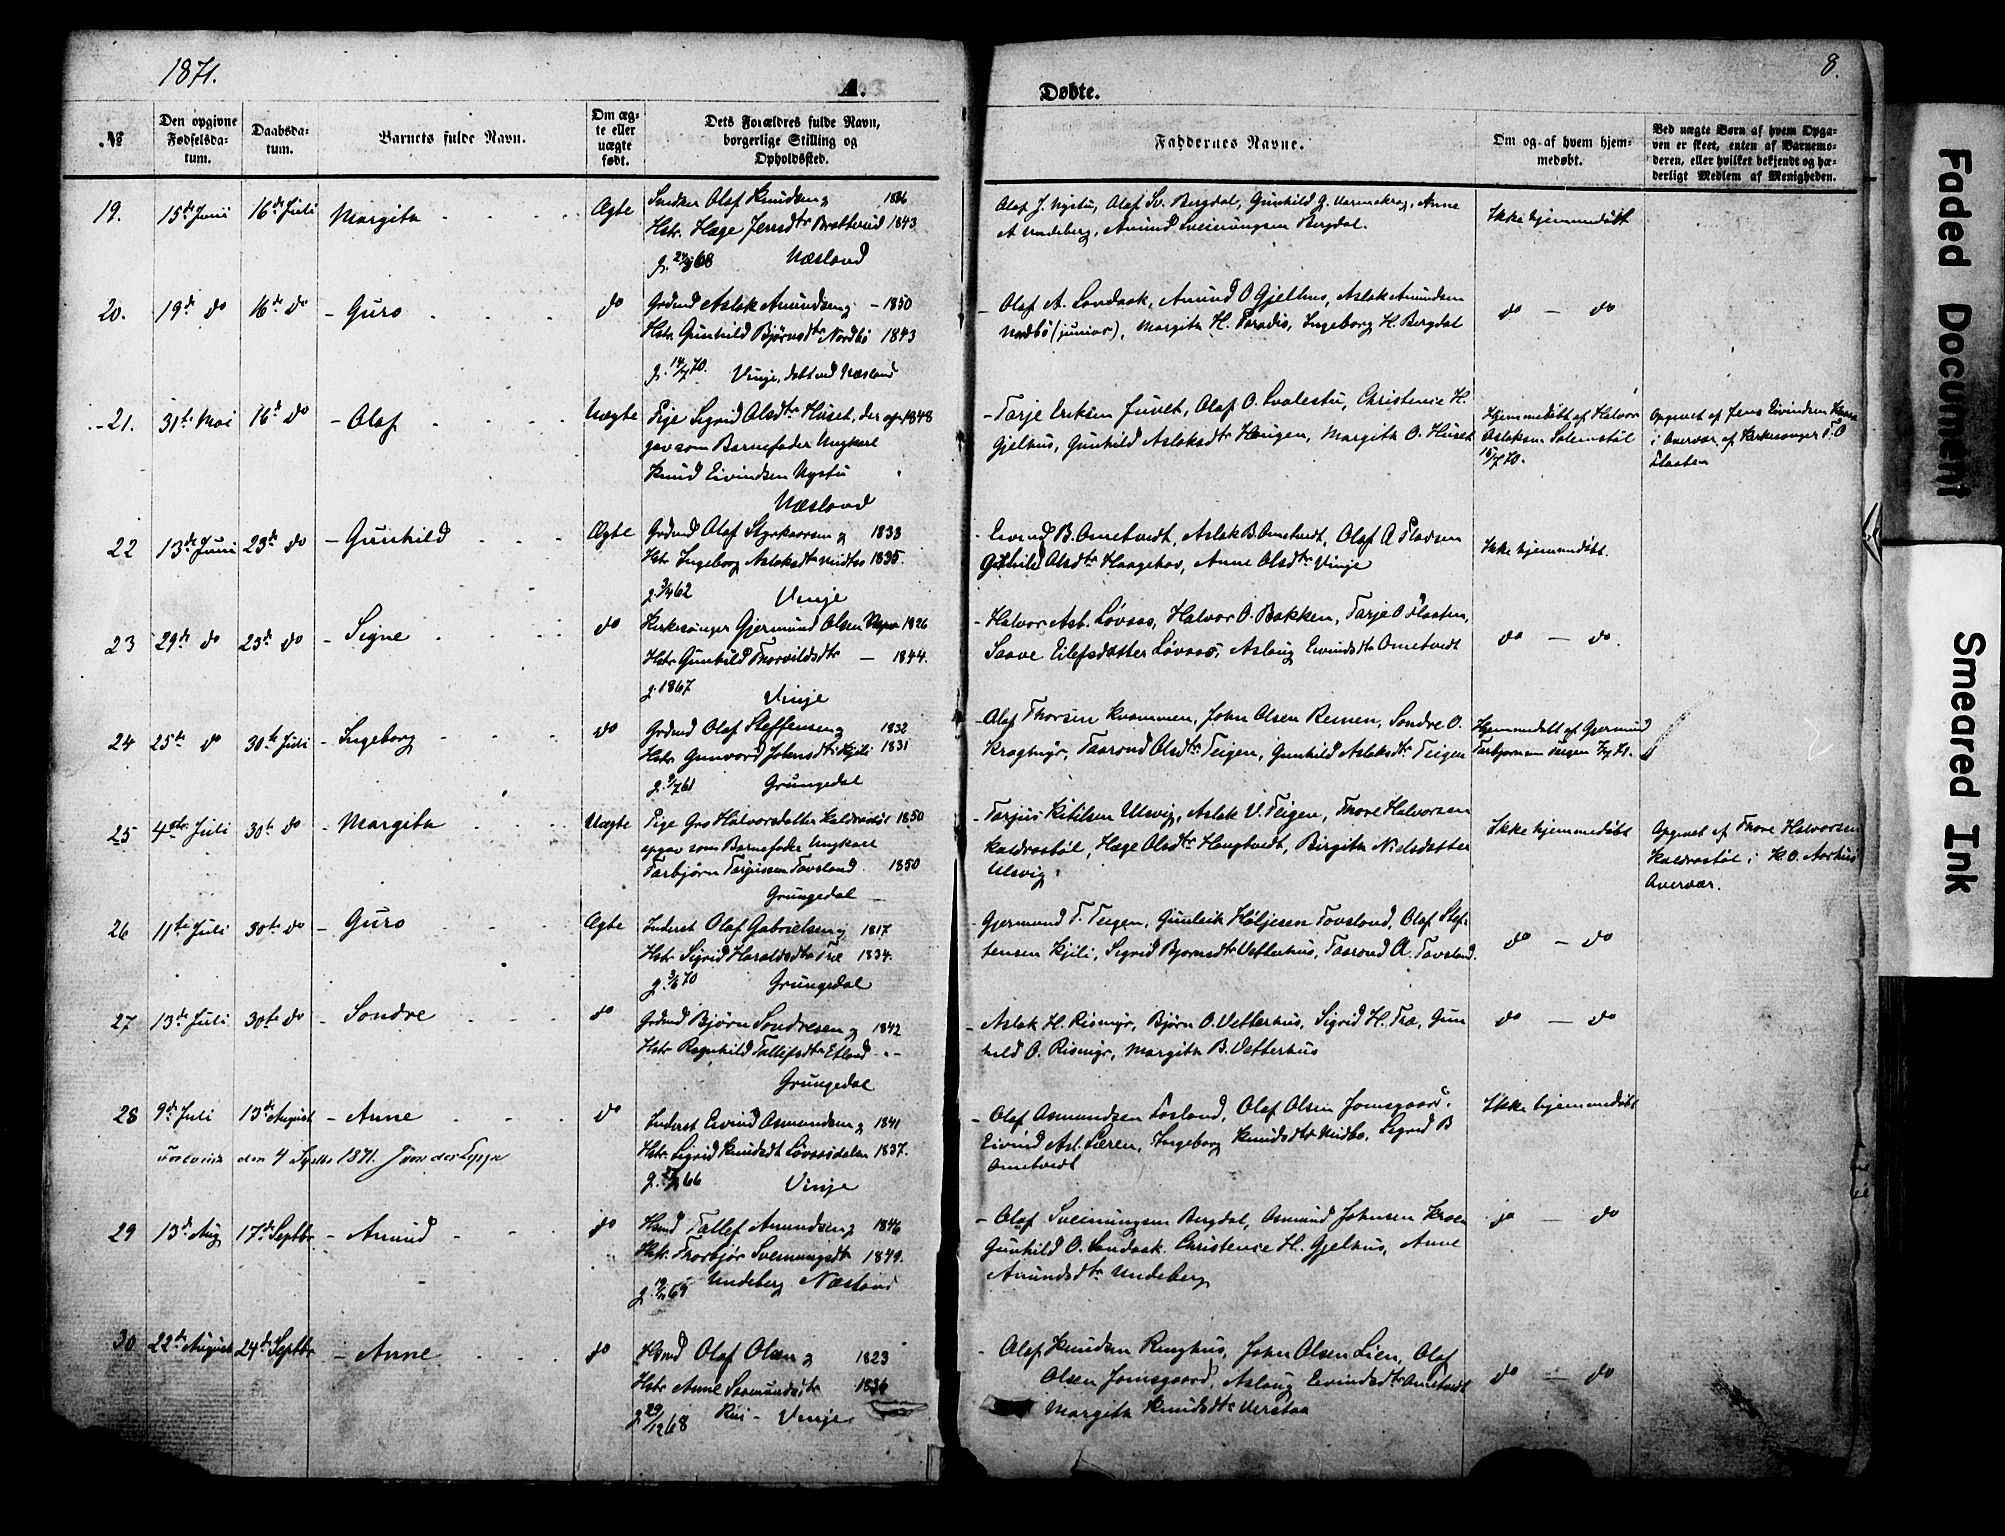 1871.
8.
A.
Døbte.
№
Den opgivne Fødselsda-tum.
Daabsda-tum.
Barnets fulde Navn.
Om æg-te eller uægte født.
Dets Forældres fulde Navn, borgerlige Stilling og Opholdssted.
Faddernes Navne.
Om og af hvem hjem-medøbt.
Ved uægte Børn af hvem Opga-ven er skeet, enten af Barnemo-deren, eller hvilket bekjendt og hæ-derligt Medlem af Menigheden.
19. 15de Juni 16de Juli Margith Ægte
Olaf Knudsen og 1836
Hstr. Hæge Jensdtr Bratterud 1843
Næsland
Olaf J. Nystu, Olaf Sv. Bergdal, Gunhild G. Anne
A Undeberg, Amund Sveinungsen Bergdal.
Ikke hjemmedøbt
20. 19de do 16de do – Guro do
Grdmd Aslak Amundsen og – 1850
Hstr. Gunhild Bjørnsdtr Nordbø 1843
g. 14/7 70. Vinje, døbt ved Næsland
– Olaf A. Sandaak, Amund O Gjelhus, Aslak Amundsen
Nordbø (junior), Margith H. Paradis, Ingeborg H. Bergdal
do – do
21. 31te Mai 16de do – Olaf Uægte
Pige Sigrid Olsdtr Huset, der op- 1848
gav som Barnefader Ungkarl
Knud Eivindsen Nystu
Næsland
– Tarje Eriksen Juvet, Olaf O. Christence H.
Gjelhus, Gunhild Aslaksdtr Haugen, Margith O. Huset
Hjemmedøbt af Halvor
Aslaksen
Opgivet af Jens Eivindsen
i Overvær af Kirkesanger T. O
Flaaten
22 13de Juni 23de do – Gunhild Ægte
Grdmd Olaf Styrkaarsen og 1833
Hstr Ingeborg Aslaksdtr Midtbø 1835.
Vinje
– Eivind B. Ometvedt, Aslak B. Ometvedt, Olaf A
Olsdtr Haagehov, Anne Olsdtr Vinje
Ikke hjemmedøbt.
23 29de do 23de do – Signe do
Kirkesanger Gjermund Olsen 1826
Hstr Gunhild Thorvildsdtr – 1844.
g. 1867 Vinje
– Halvor Asl. Løvaas, Halvor O. Bakken, Tarje O Flaaten,
Saave Eilefsdatter Løvaas, Aslaug Eivindsdtr Ometvedt
do – do.
24 25te do 30te Juli – Ingeborg do
Grdmd Olaf Steffensen og 1832
Hstr Gunvord Johnsdtr Kjili 1831
Grungedal
– Olaf Thorsen Kvammen, John Olsen Reinen, Sondre O.
Taarond Olsdtr Teigen, Gunhild Aslaksdtr Teigen
Hjemmedøbt af Gjermund
Tarbjørnsen Teigen
25 4de Juli 30te do – Margith Uægte
Pige Gro Halvorsdatter Kaldrastøl 1850
opgav som Barnefader Ungkarl
Tarbjørn Tarjeisen Tovsland. 1850
Grungedal –
– Tarjei Kitilsen Ulsvig, Aslak V. Teigen, Thore Halvorsen
Kaldrastøl, Hæge Olsdtr Haugtvedt, Birgith Nielsdatter
Ulsvig.
Ikke hjemmedøbt
Opgivet af Thore Halvorsen
Kaldrastøl i K. O. Aarhus
Overvær.
26 11te Juli 30te do – Guro Ægte
Inderst Olaf Gabrielsen og 1817
Hstr Sigrid Haraldsdtr Træ 1834.
Grungedal
– Gjermund T. Teigen, Gunleik Høljesen Tovsland, Olaf Stef-
fensen Kjili, Sigrid Bjørnsdtr Vetterhus, Taarond A. Tovsland.
do – do
27 13de Juli 30te do – Sondre do
Grdmd Bjørn Sondresen og 1842
Hstr Ragnhild Tallefsdtr Etland –
Grungedal
– Aslak H. Rismyr, Bjørn O. Vetterhus, Sigrid H. Træ, Gun
hild O. Rismyr, Margith B. Vetterhus
do – do
28 9de Juli 13de August – Anne do
den 4 1871.
Inderst Eivind Asmundsen og 1841
Hstr. Sigrid Knudsdt Løvaasdalen 1837.
Vinje
– Olaf Asmundsen Fosland, Olaf Olsen Jamsgaard,
Eivind Asl. Særen, Ingeborg Knudsdtr Midbø, Sigrid B
Ometvedt
Ikke hjemmedøbt
29 13de Aug 17de Septbr – Amund do
Hsmd Tallef Amundsen og 1846
Hstr. Thorbjør Sveinungsdtr 1849.
Undeberg Næsland
– Olaf Sveinungsen Bergdal, Asmund Johnsen
Gunhild O. Sandaak. Christence H. Gjelhus, Anne
Amundsdtr Undeberg
do – do
30 22de August 24de Septbr – Anne do
Hsmd Olaf Olsen og 1823
Hstr Anne Saamundsdtr 1836
g. 29/12 68 Rui – Vinje
– Olaf Knudsen Ringhus, John Olsen Lien, Olaf
Olsen Jamsgaard, Aslaug Eivindsdtr Ometvedt
Margith Knudsdtr Verstaa
do – do
Faded Document
Smeared Ink